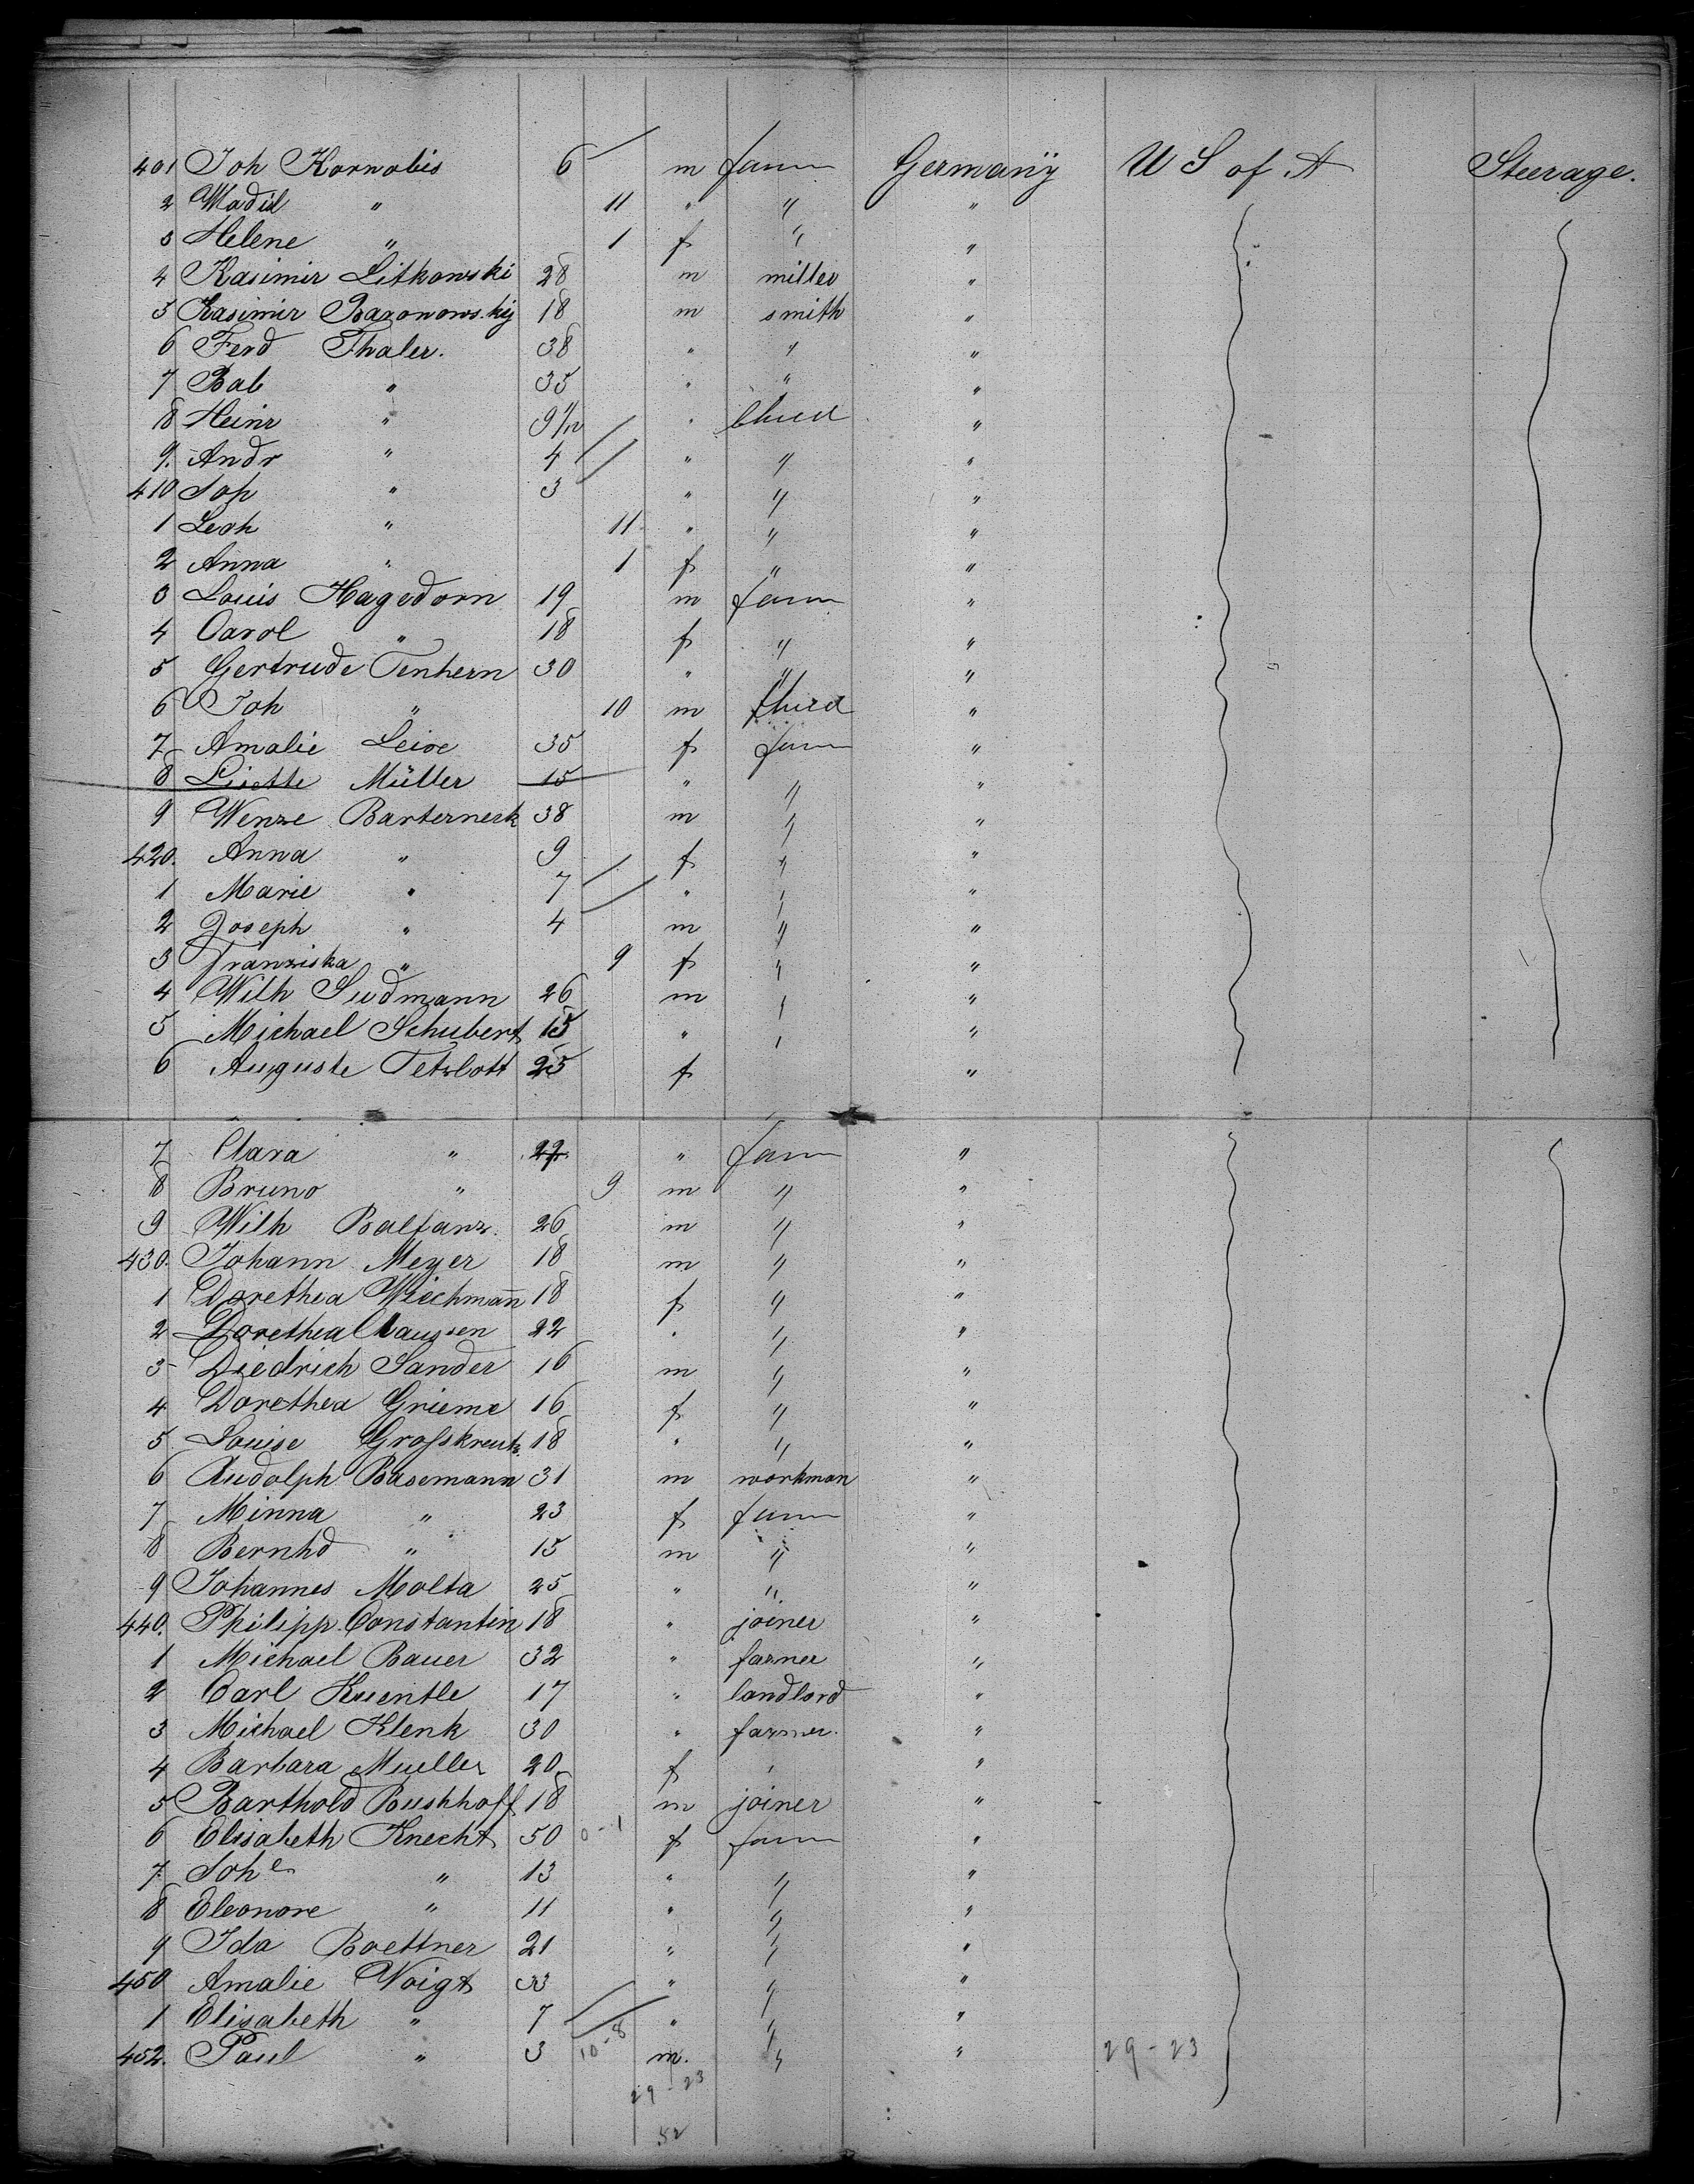 401 Joh Kornobis 6 m fam Germany U S of A Steerage.
2 Wadil " 11 " " "
3 Helene " 1 f " "
4 Kasimir Litkowski 28 m miller "
5 Kasimir Baronowskij 18 m smith "
6 Ferd Thaler. 38 " " "
7 Bab " 35 " " "
8 Heinr " 9 11/12 " Child "
9. Andr " 4 " " "
410 Soph " 3 " " "
1 Leoh " 11 " " "
2 Anna " 1 f " "
3 Louis Hagedorn 19 m fam "
4 Carol " 18 f " "
5 Gertrude Tenhern 30 " " "
6 Joh " 10 m Child "
7 Amalie 35 f fam "
8 Lisette Müller 15 " " "
9 Wenze 38 m " "
420. Anna " 9 f " "
1 Marie " 7 " " "
2 Joseph " 4 m " "
3 Franziska " 9 f " "
4 Wilh Sudmann 26 m " "
5 Michael Schubert 15 " " "
6 Auguste 25 f "
7 Clara " " fam "
8 Bruno " 9 m " "
9 Wilh Baltanz. 26 m " "
430. Johann Meyer 18 m " "
1 Dorethea Wiechmann̄ 18 f " "
2 Dorethea Claussen 22 " " "
3 Diedrich Sander 16 m " "
4 Dorethea Grieme 16 f " "
5 Louise Grosskreutz 18 " " "
6 Rudolph Basemann 31 m workman "
7 Minna " 23 f fam "
8 Bernhd " 15 m " "
9 Johannes Molta 25 " " "
440. Philipp Constantin 18 " joiner "
1 Michael Bauer 32 " farner "
2 Carl Kuentle 17 " landlord "
3 Michael Klenk 30 " farmer. "
4 Barbara Mueller 20 f " "
5 Barthold Bushhoff 18 m joiner "
6 Elisabeth Knecht 50 0-1 f fam "
7. Sohe " 13 " " "
8 Eleonore " 11 " " "
9 Ida Boettner 21 " " "
450 Amalie Voigt 33 " " "
1 Elisabeth " 7 " " "
452. Paul " 3 10-8 m. " " 29-23
29-23
52